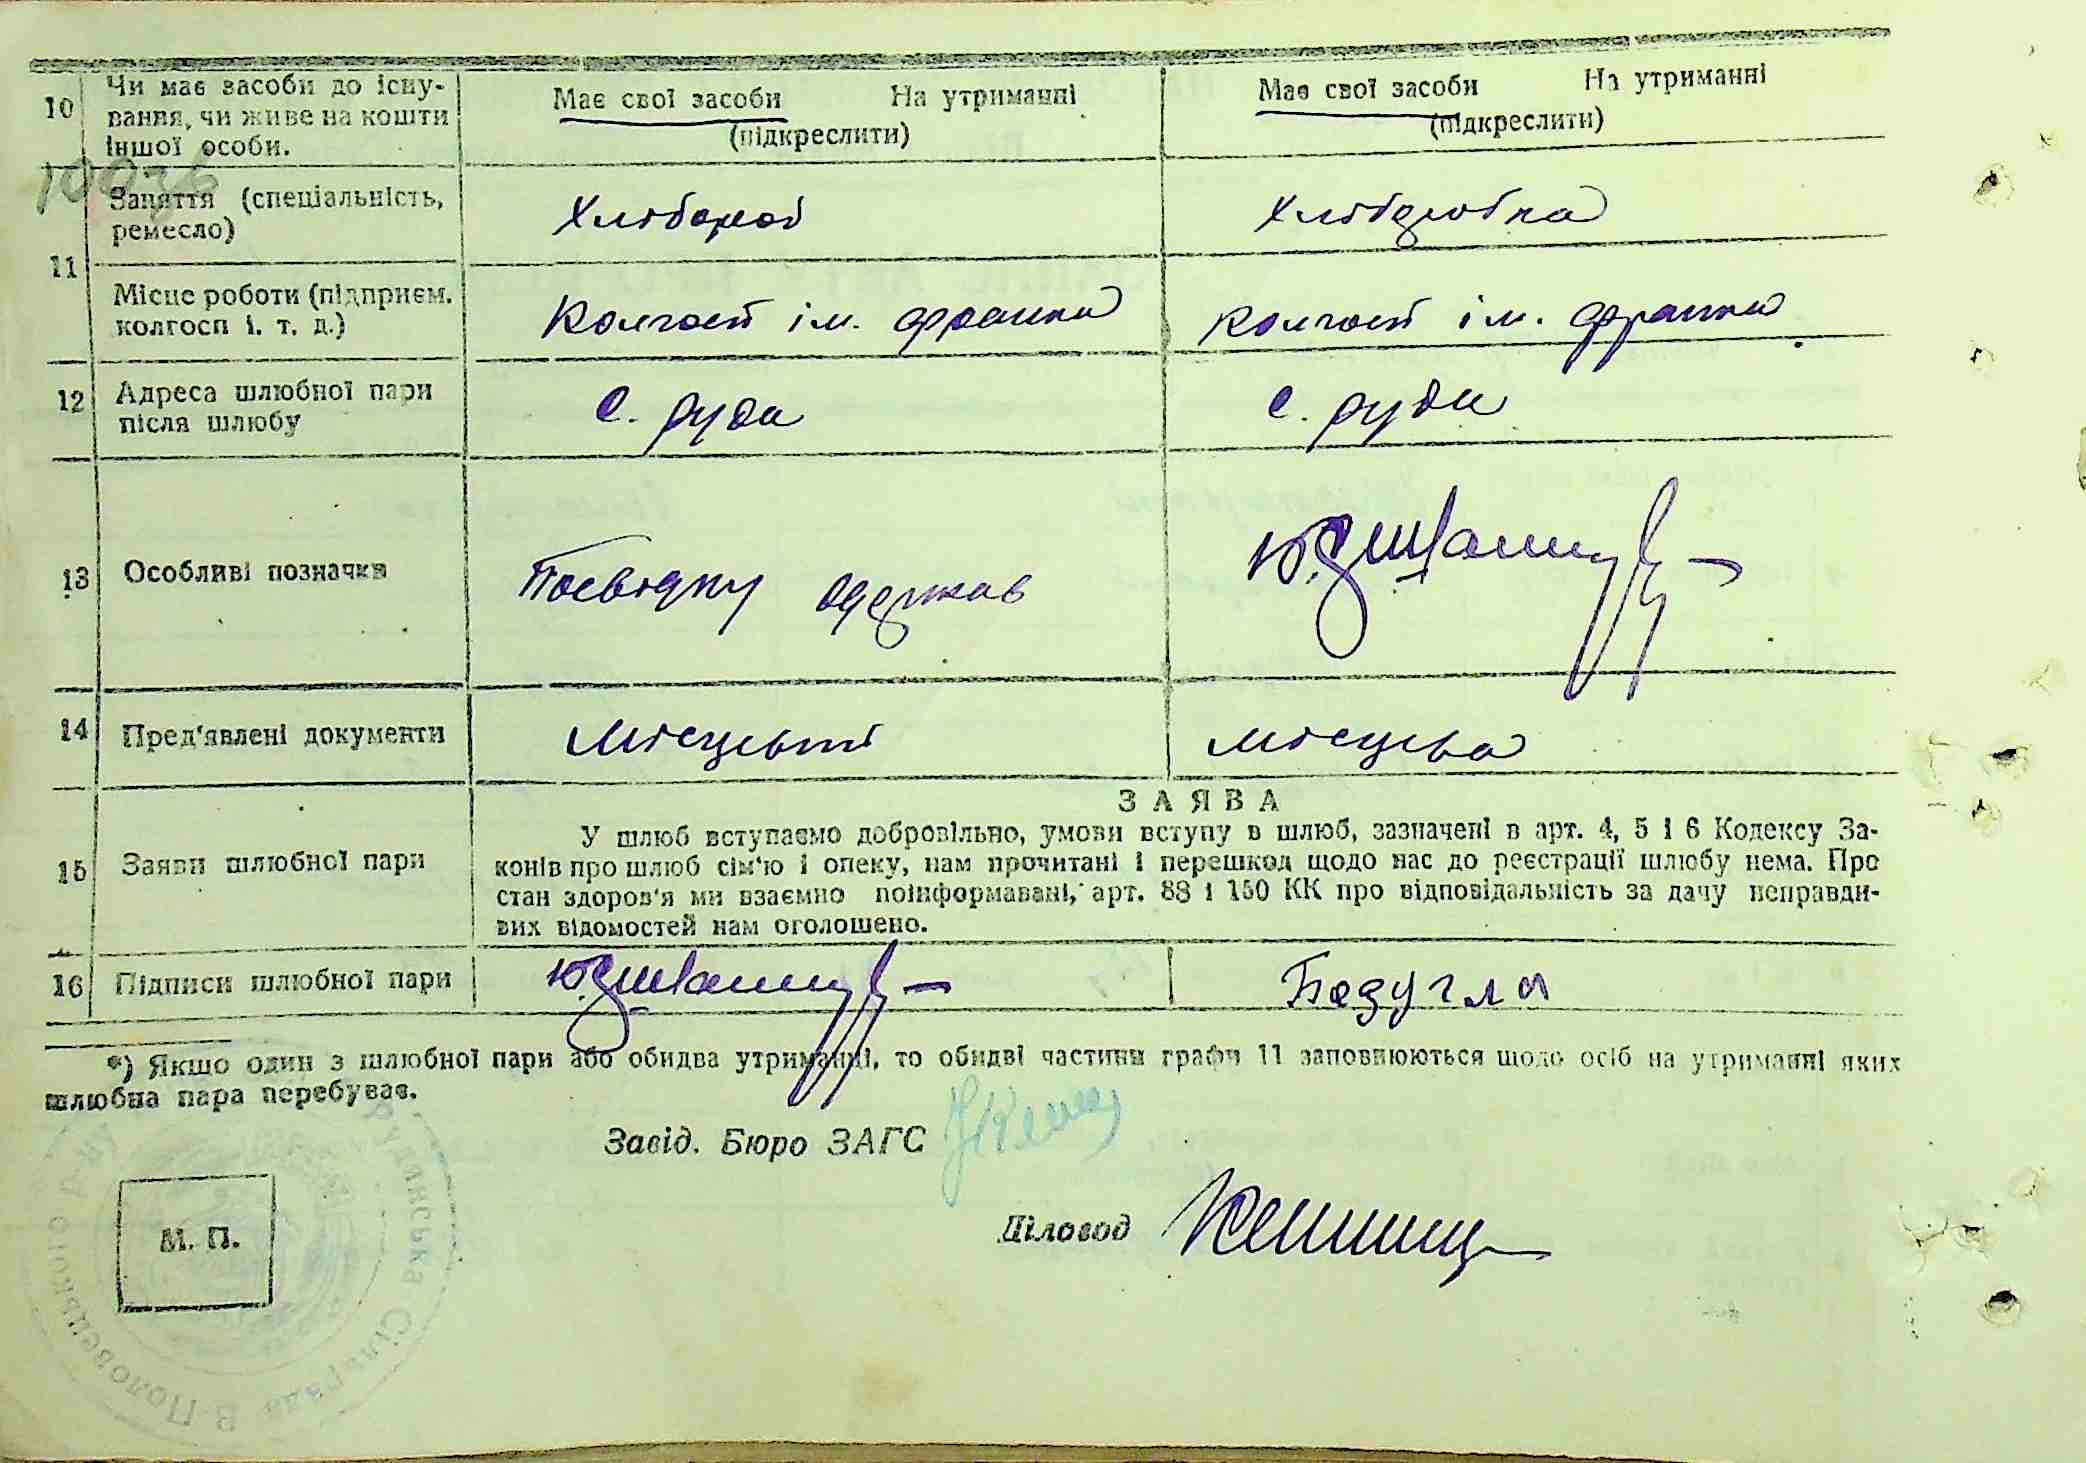 10
Чи має засоби до існу-
вання, чи живе на кошти
іншої особи.
Має свої засоби На утриманні
(підкреслити)
Має свої засоби На утриманні
(підкреслити)
11
Заняття (спеціальність,
ремесло)
Хлібороб
Хліборобка
Місце роботи (підприєм.
колгосп і. т. д.)
Колгосп ім. Франка
Колгосп ім. Франка
12
Адреса шлюбної пари
після шлюбу
С. Руда
С. Руда
13
Особливі позначки
Посвідку одержав
14
Пред'явлені документи
Місцевий
Місцева
15
Заяви шлюбної пари
ЗАЯВА
У шлюб вступаємо добровільно, умови вступу в шлюб, зазначені в арт. 4, 5 і 6 Кодексу За-
конів про шлюб сім'ю і опеку, нам прочитані і перешкод щодо нас до реєстрації шлюбу нема. Про
стан здоров'я ми взаємно поінформавані, арт. 88 і 150 КК про відповідальність за дачу неправди-
вих відомостей нам оголошено.
16
Підписи шлюбної пари
Безугла
*) Якщо один з шлюбної пари або обидва утриманці, то обидві частини графи 11 заповнюються щодо осіб на утриманні яких
шлюбна пара перебуває.
Завід. Бюро ЗАГС
Діловод
М. П.
Рудянська Сільрада В Половецького